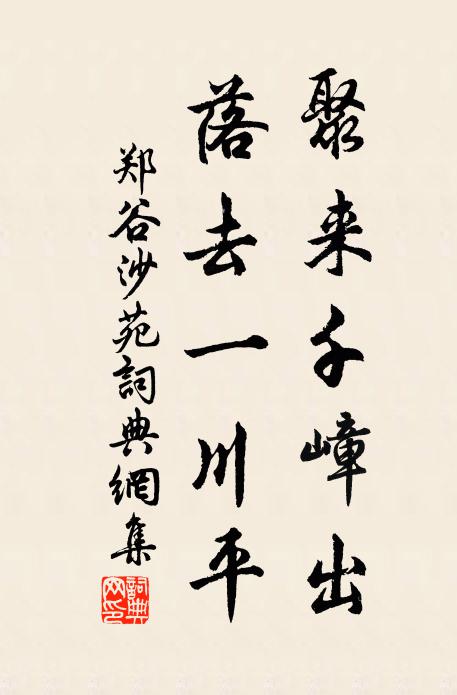 聚来千嶂出
落去一川平
郑谷沙苑詞典網集
詞典網印